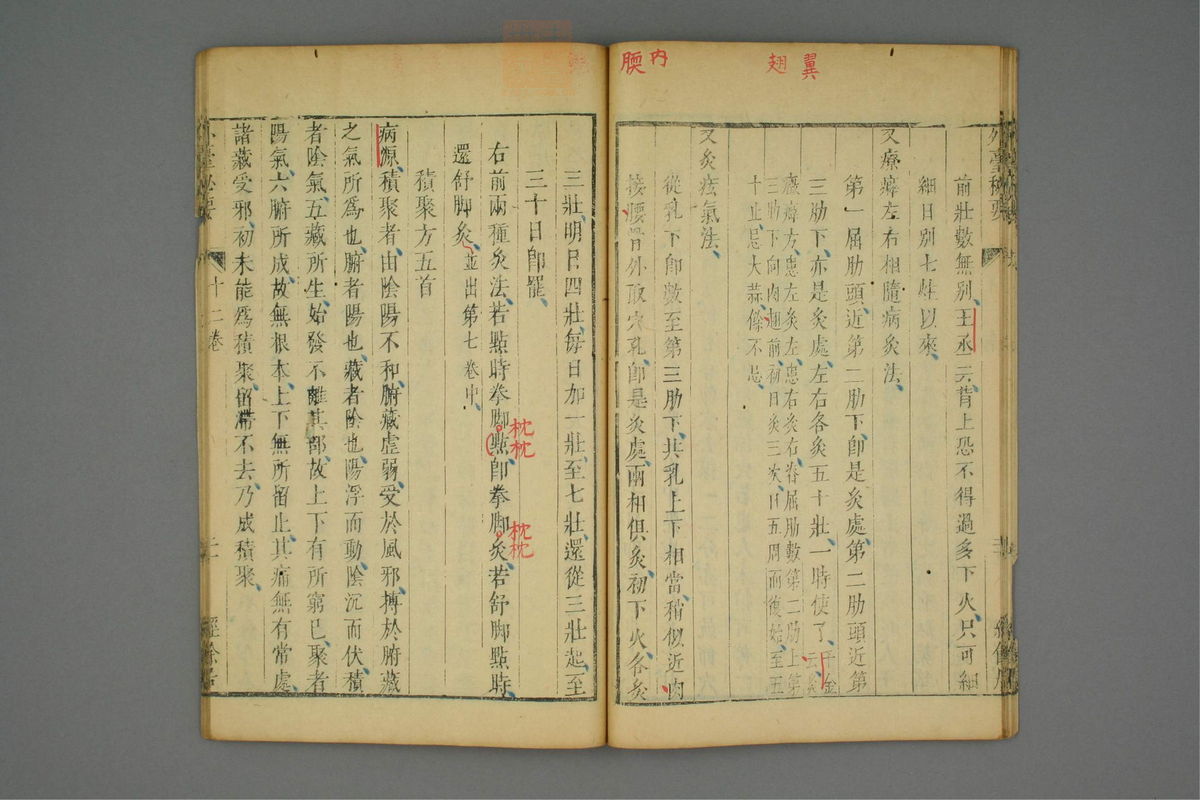 翼
翅
内
腰
外臺秘要
前壯數無別王丞云背上恐不得過多下火只可細
細日別七炷以來
又療癖左右相隨病灸法
第一屈肋頭近第二肋下即是灸處第二肋頭近第
三肋下亦是灸處左右各灸五十壯一時使了千金
云灸
癥癖方患左灸左患右灸右脊屈肋數第二肋上第
三肋下向肉翅前初日灸三次日五周而復始至五
十止忌大蒜餘不忌
又灸痃氣法
從乳下即數至第三肋下共乳上下相當稍似近肉
接腰骨外取穴孔即是灸處兩相俱灸初下火各灸
三壯明日四壯每日加一壯至七壯還從三壯起至
三十日即罷
右前兩種灸法若點時拳脚點即拳脚灸若舒脚點時
枕枕
枕枕
還舒脚灸並出第七卷中
積聚方五首
病源積聚者由陰陽不和腑藏虛弱受於風邪搏於腑藏
之氣所爲也腑者陽也藏者陰也陽浮而動陰沉而伏積
者陰氣五藏所生始發不離其部故上下有所窮已聚者
陽氣六腑所成故無根本上下無所留止其痛無有常處
諸藏受邪初未能爲積聚留滯不去乃成積聚
外臺秘要
十二卷
經餘居